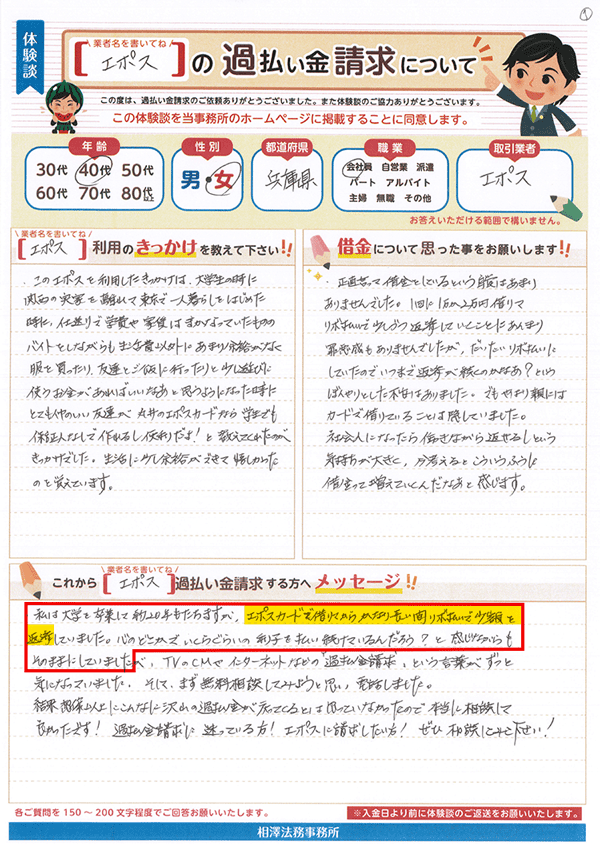 ①
体験談
業者名を書いてね
[エポス]の過払い金請求について
この度は、過払い金請求のご依頼ありがとうございました。また体験談のご協力ありがとうございます。
この体験談を当事務所のホームページに掲載することに同意します。
年齢
30代 40代 50代
60代 70代 80代以上
性別
男・女
都道府県
兵庫県
職業
会社員 自営業 派遣
パート アルバイト
主婦 無職 その他
取引業者
エポス
お答えいただける範囲で構いません。
業者名を書いてね
[エポス]利用のきっかけを教えて下さい!!
・このエポスを利用したきっかけは、大学生の時に
関西の実家を離れて東京で一人暮らしをはじめた
時に、仕送りで学費や家賃はまかなっていたものの
バイトをしながらも生活費以外にあまり余裕がなく
服を買ったり、友達とご飯に行ったりと少し遊びに
使うお金があればいいなあと思うようになった時に
とても仲のいい友達が丸井のエポスカードなら学生でも
保証人なしで作れるし便利だよ!と教えてくれたのが
きっかけでした。生活に少し余裕ができて嬉しかった
のを覚えています。
借金について思った事をお願いします!!
・正直言って借金をしているという感覚はあまり
ありませんでした。1回に1万、2万円借りて
リボ払いで少しづつ返済していくことにあんまり
罪悪感もありませんでしたが、だいたいリボ払いに
していたのでいつまで返済が続くのかなあ?という
ぼんやりとした不安はありました。でもやはり親には
カードで借りていることは隠していました。
社会人になったら働きながら返せるしという
気持ちが大きく、今考えるとこういうふうに
借金って増えていくんだなあと感じます。
業者名を書いてね
これから[エポス]過払い金請求する方へメッセージ!!
私は大学を卒業して約20年もたちますが、エポスカードで借りてからかなり長い間リボ払いで少額を
返済していました。心のどこかでいくらぐらいの利子を払い続けているんだろう?と感じながらも
そのままにしていましたが、TVのCMやインターネットなどの「過払い金請求」という言葉がずっと
気になっていました。そして、まず無料相談してみようと思い、電話しました。
結果、想像以上にこんなに沢山の過払い金が戻ってくるとは思っていなかったので本当に相談して
良かったです!過払い金請求に迷っている方!エポスに請求したい方!ぜひ相談してみて下さい!
各ご質問を150〜200文字程度でご回答お願いいたします。
※入金日より前に体験談のご返送をお願いいたします。
相澤法務事務所